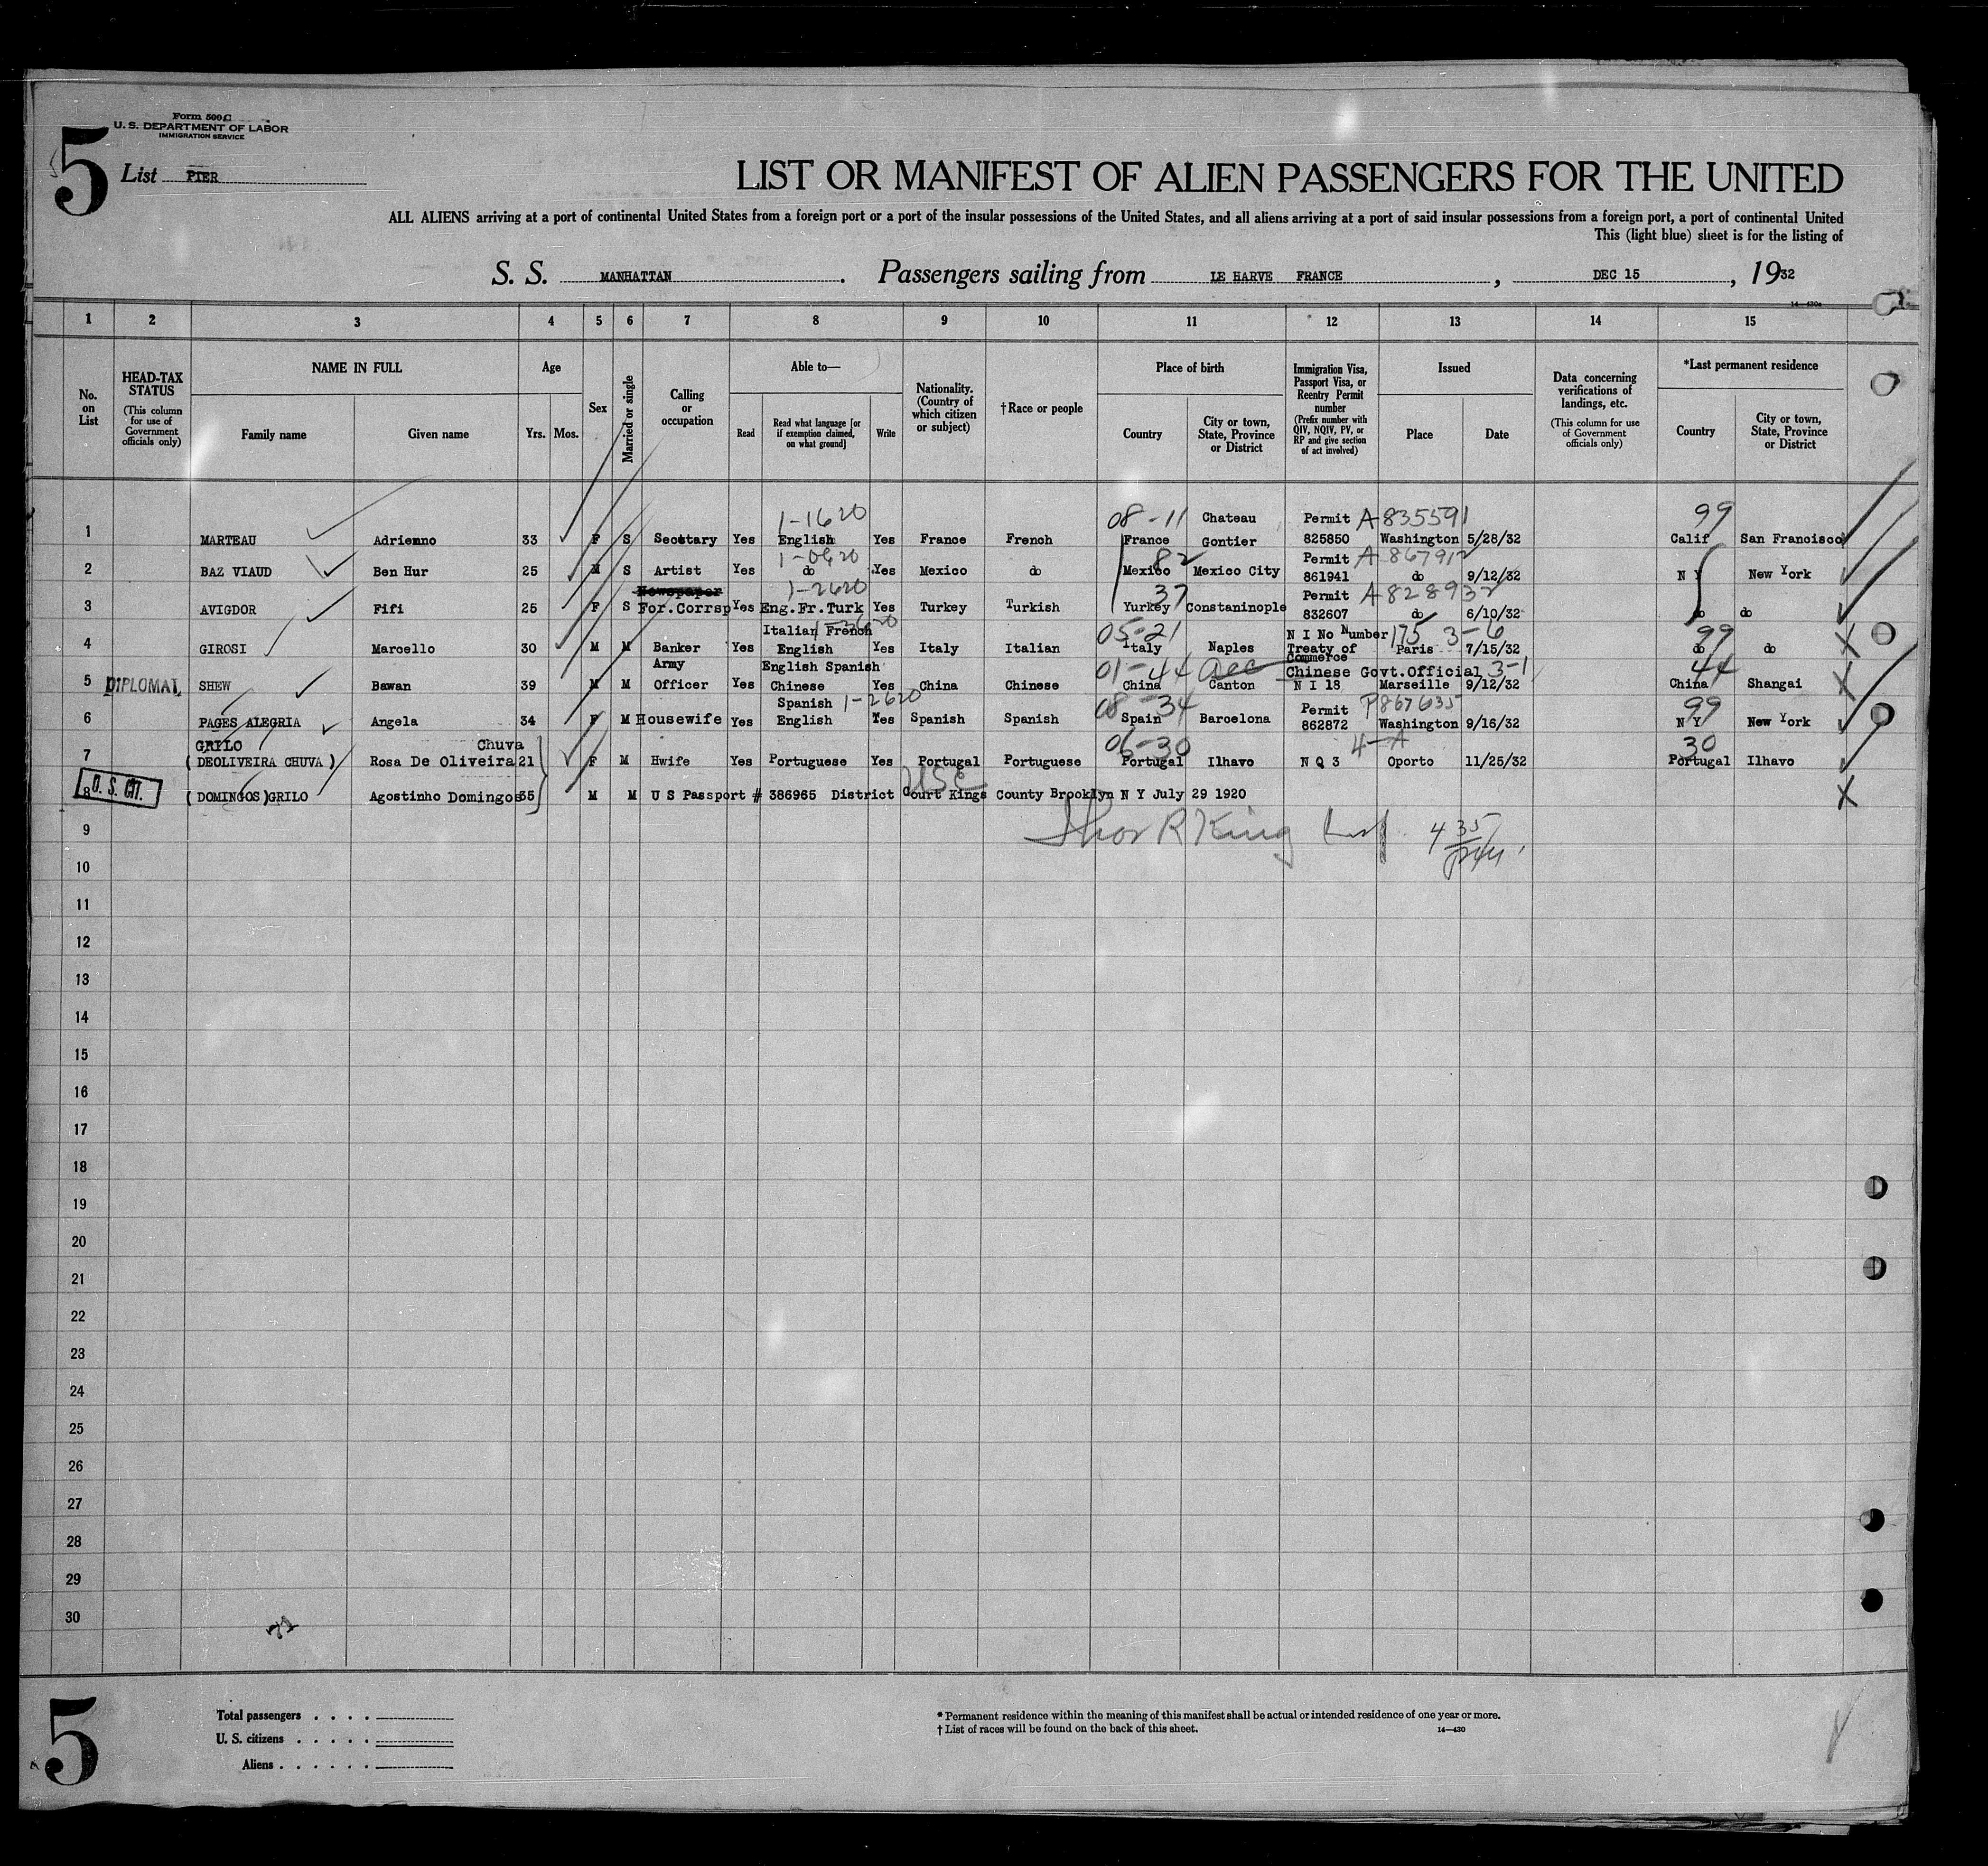 Form 500 C
U. S. DEPARTMENT OF LABOR
IMMIGRATION SERVICE
5
List PIER
LIST OR MANIFEST OF ALIEN PASSENGERS FOR THE UNITED
ALL ALIENS arriving at a port of continental United States from a foreign port or a port of the insular possessions of the United States, and all aliens arriving at a port of said insular possessions from a foreign port, a port of continental United
This (light blue) sheet is for the listing of
S. S. MANHATTAN. Passengers sailing from LE HARVE FRANCE, DEC 15, 1932
14—430a
1 2 3 4 5 6 7 8 9 10 11 12 13 14 15
No. on List
HEAD-TAX STATUS (This column for use of Government officials only)
NAME IN FULL
Family name
Given name
Age
Yrs. Mos.
Sex
Married or single
Calling or occupation
Able to—
Read
Read what language [or if exemption claimed, on what ground]
Write
Nationality. (Country of which citizen or subject)
†Race or people
Place of birth
Country
City or town, State, Province or District
Immigration Visa, Passport Visa, or Reentry Permit number (Prefix number with QIV, NQIV, PV, or RP and give section of act involved)
Issued
Place
Date
Data concerning verifications of landings, etc. (This column for use of Government officials only)
*Last permanent residence
Country
City or town, State, Province or District
1-1620 08-11 Chateau Permit A-835591 99
1 MARTEAU Adrienno 33 F S Secetary Yes English Yes France French France Gontier 825850 Washington 5/28/32 Calif San Francisco
1-0620 82 Permit A-867912
2 BAZ VIAUD Ben Hur 25 M S Artist Yes do Yes Mexico do Mexico Mexico City 861941 do 9/12/32 N Y New York
Newspaper 1-2620 37 Permit A-828932
3 AVIGDOR Fifi 25 F S For.Corrsp Yes Eng.Fr.Turk Yes Turkey Turkish Yurkey Constaninople 832607 do 6/10/32 do do
Italian French 1-3620 05-21 N I No Number 175 3-6 99
4 GIROSI Marcello 30 M M Banker Yes English Yes Italy Italian Italy Naples Treaty of Commerce Paris 7/15/32 do do
Army English Spanish 01-44 Chinese Govt.Official 3-1 44
DIPLOMAT 5 SHEW Bawan 39 M M Officer Yes Chinese Yes China Chinese China Canton N I 18 Marseille 9/12/32 China Shangai
Spanish 1-2620 08-34 Permit P867635 99
6 PAGES ALEGRIA Angela 34 F M Housewife Yes English Yes Spanish Spanish Spain Barcelona 862872 Washington 9/16/32 N Y New York
GRILO Chuva 06-30 4-A 30
7 (DEOLIVEIRA CHUVA) Rosa De Oliveira 21 F M Hwife Yes Portuguese Yes Portugal Portuguese Portugal Ilhavo N Q 3 Oporto 11/25/32 Portugal Ilhavo
U. S. CIT. USC
8 (DOMINGOS)GRILO Agostinho Domingos 35 M M U S Passport # 386965 District Court Kings County Brooklyn N Y July 29 1920
9 Thos R King 4 35
10
11
12
13
14
15
16
17
18
19
20
21
22
23
24
25
26
27
28
29
30
5
Total passengers . . . .
U. S. citizens . . . . .
Aliens . . . . . .
* Permanent residence within the meaning of this manifest shall be actual or intended residence of one year or more.
† List of races will be found on the back of this sheet.
14—430